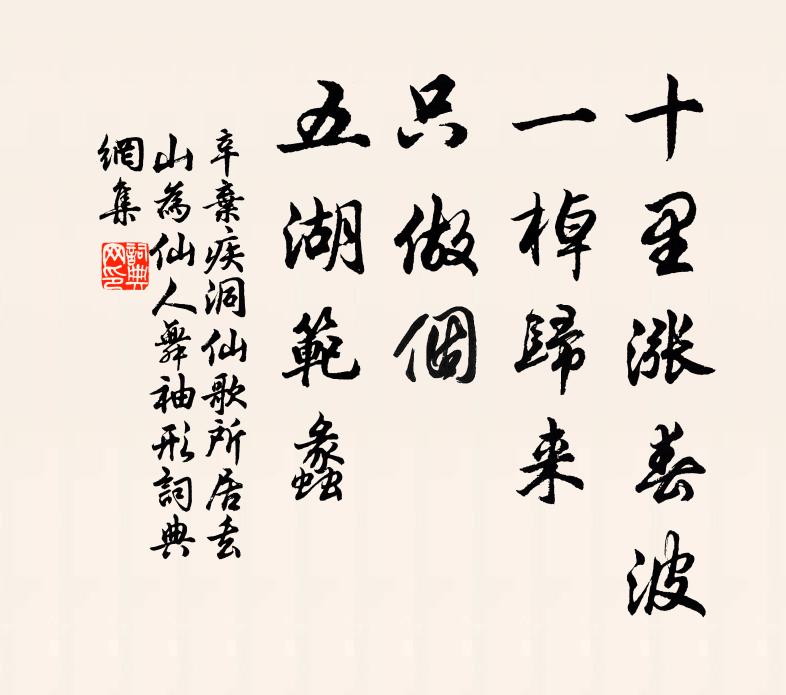 十里漲春波
一棹歸来
只做個
五湖範蠡
辛棄疾洞仙歌所居去
山為仙人舞袖形詞典
網集
詞典
网印